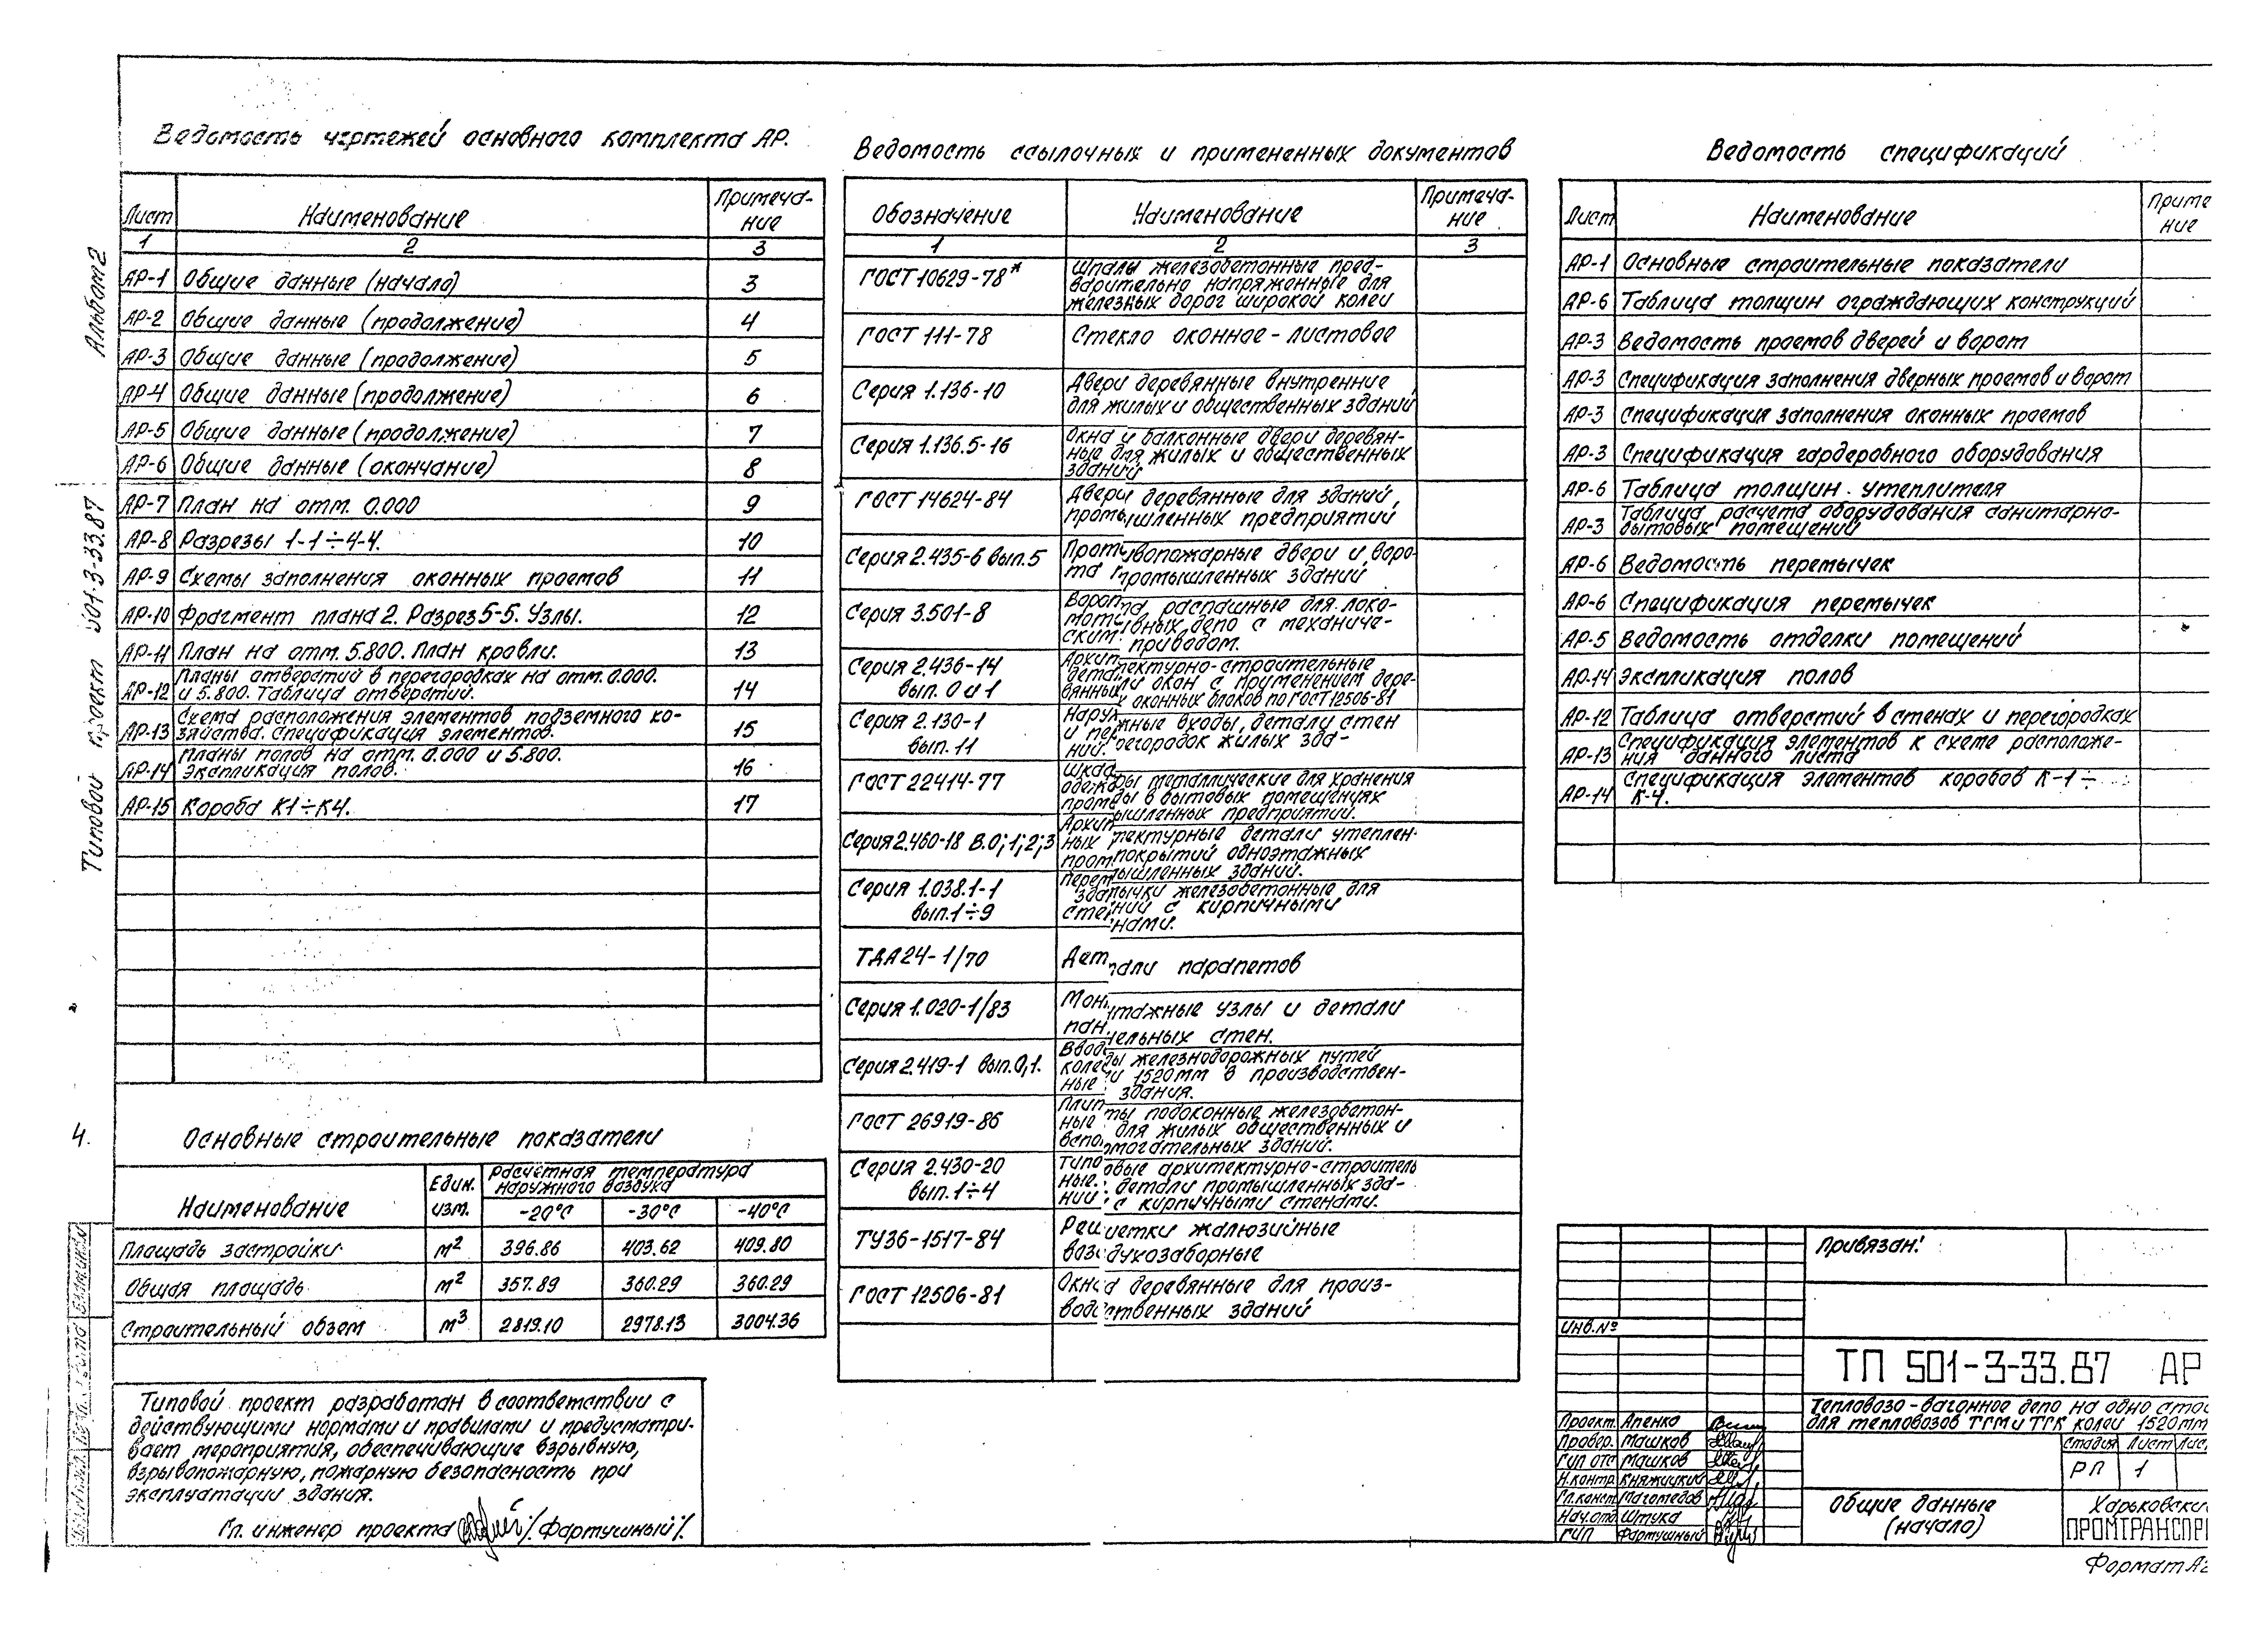 Альбом 2
Типовой проект 501-3-33.87
4.
Ведомость чертежей основного комплекта АР.
Лист Наименование Примеча-
ние
1 2 3
АР-1 Общие данные (начало) 3
АР-2 Общие данные (продолжение) 4
АР-3 Общие данные (продолжение) 5
АР-4 Общие данные (продолжение) 6
АР-5 Общие данные (продолжение) 7
АР-6 Общие данные (окончание) 8
АР-7 План на отм. 0.000 9
АР-8 Разрезы 1-1÷4-4. 10
АР-9 Схемы заполнения оконных проемов 11
АР-10 Фрагмент плана 2. Разрез 5-5. Узлы. 12
АР-11 План на отм. 5.800. План кровли. 13
АР-12 Планы отверстий в перегородках на отм. 0.000.
и 5.800. Таблица отверстий. 14
АР-13 Схема расположения элементов подземного хо-
зяйства. Спецификация элементов. 15
АР-14 Планы полов на отм. 0.000 и 5.800.
Экспликация полов. 16
АР-15 Короба К1÷К4. 17
Основные строительные показатели
Наименование Един.
изм. Расчётная температура
наружного воздуха
-20°С -30°С -40°С
Площадь застройки м² 396.86 403.62 409.80
Общая площадь м² 357.89 360.29 360.29
Строительный объем м³ 2819.10 2978.13 3004.36
Типовой проект разработан в соответствии с
действующими нормами и правилами и предусматри-
вает мероприятия, обеспечивающие взрывную,
взрывопожарную, пожарную безопасность при
эксплуатации здания.
Гл. инженер проекта /Фартушный/.
Ведомость ссылочных и примененных документов
Обозначение Наименование Примеча-
ние
1 2 3
ГОСТ 10629-78* Шпалы железобетонные пред-
варительно напряженные для
железных дорог широкой колеи
ГОСТ 111-78 Стекло оконное - листовое
Серия 1.136-10 Двери деревянные внутренние
для жилых и общественных зданий
Серия 1.136.5-16 Окна и балконные двери деревян-
ные для жилых и общественных
зданий
ГОСТ 14624-84 Двери деревянные для зданий
промышленных предприятий
Серия 2.435-6 вып. 5 Противопожарные двери и воро-
та промышленных зданий
Серия 3.501-8 Ворота распашные для локо-
мотивных депо с механиче-
ским приводом.
Серия 2.436-14
вып. 0 и 1 Архитектурно-строительные
детали окон с применением дере-
вянных оконных блоков по ГОСТ 12506-81
Серия 2.130-1
вып. 11 Наружные входы, детали стен
и перегородок жилых зда-
ний.
ГОСТ 22414-77 Шкафы металлические для хранения
одежды в бытовых помещениях
промышленных предприятий.
Серия 2.460-18 В. 0; 1; 2; 3 Архитектурные детали утеплен-
ных покрытий одноэтажных
промышленных зданий.
Серия 1.038.1-1
вып. 1÷9 Перемычки железобетонные для
зданий с кирпичными
стенами.
ТДА 24-1/70 Детали парапетов
Серия 1.020-1/83 Монтажные узлы и детали
панельных стен.
Серия 2.419-1 вып. 0,1. Вводы железнодорожных путей
колеи 1520мм в производствен-
ные здания.
ГОСТ 26919-86 Плиты подоконные железобетон-
ные для жилых общественных и
вспомогательных зданий.
Серия 2.430-20
вып. 1÷4 Типовые архитектурно-строитель
ные детали промышленных зда-
ний с кирпичными стенами.
ТУ36-1517-84 Решетки жалюзийные
воздухозаборные
ГОСТ 12506-81 Окна деревянные для произ-
водственных зданий
Ведомость спецификаций
Лист Наименование Приме
ние
АР-1 Основные строительные показатели
АР-6 Таблица толщин ограждающих конструкций
АР-3 Ведомость проемов дверей и ворот
АР-3 Спецификация заполнения дверных проемов и ворот
АР-3 Спецификация заполнения оконных проемов
АР-3 Спецификация гардеробного оборудования
АР-6 Таблица толщин утеплителя
АР-3 Таблица расчета оборудования санитарно-
бытовых помещений
АР-6 Ведомость перемычек
АР-6 Спецификация перемычек
АР-5 Ведомость отделки помещений
АР-14 Экспликация полов
АР-12 Таблица отверстий в стенах и перегородках
АР-13 Спецификация элементов к схеме расположе-
ния данного листа
АР-14 Спецификация элементов коробов К-1÷
К-4.
Привязан:
Инв.№
ТП 501-3-33.87 АР
Тепловозо-вагонное депо на одно стой
для тепловозов ТГМ и ТГК колеи 1520мм
Проект. Апенко
Провер. Машков
ГИП ОТС Машков
Н.контр. Княжицкий
Гл.конст. Магомедов
Нач.отд. Штука
ГИП Фартушный
Стадия Лист Лис
РП 1
Общие данные
(начало)
Харьковски
ПРОМТРАНСПР
Формат А2